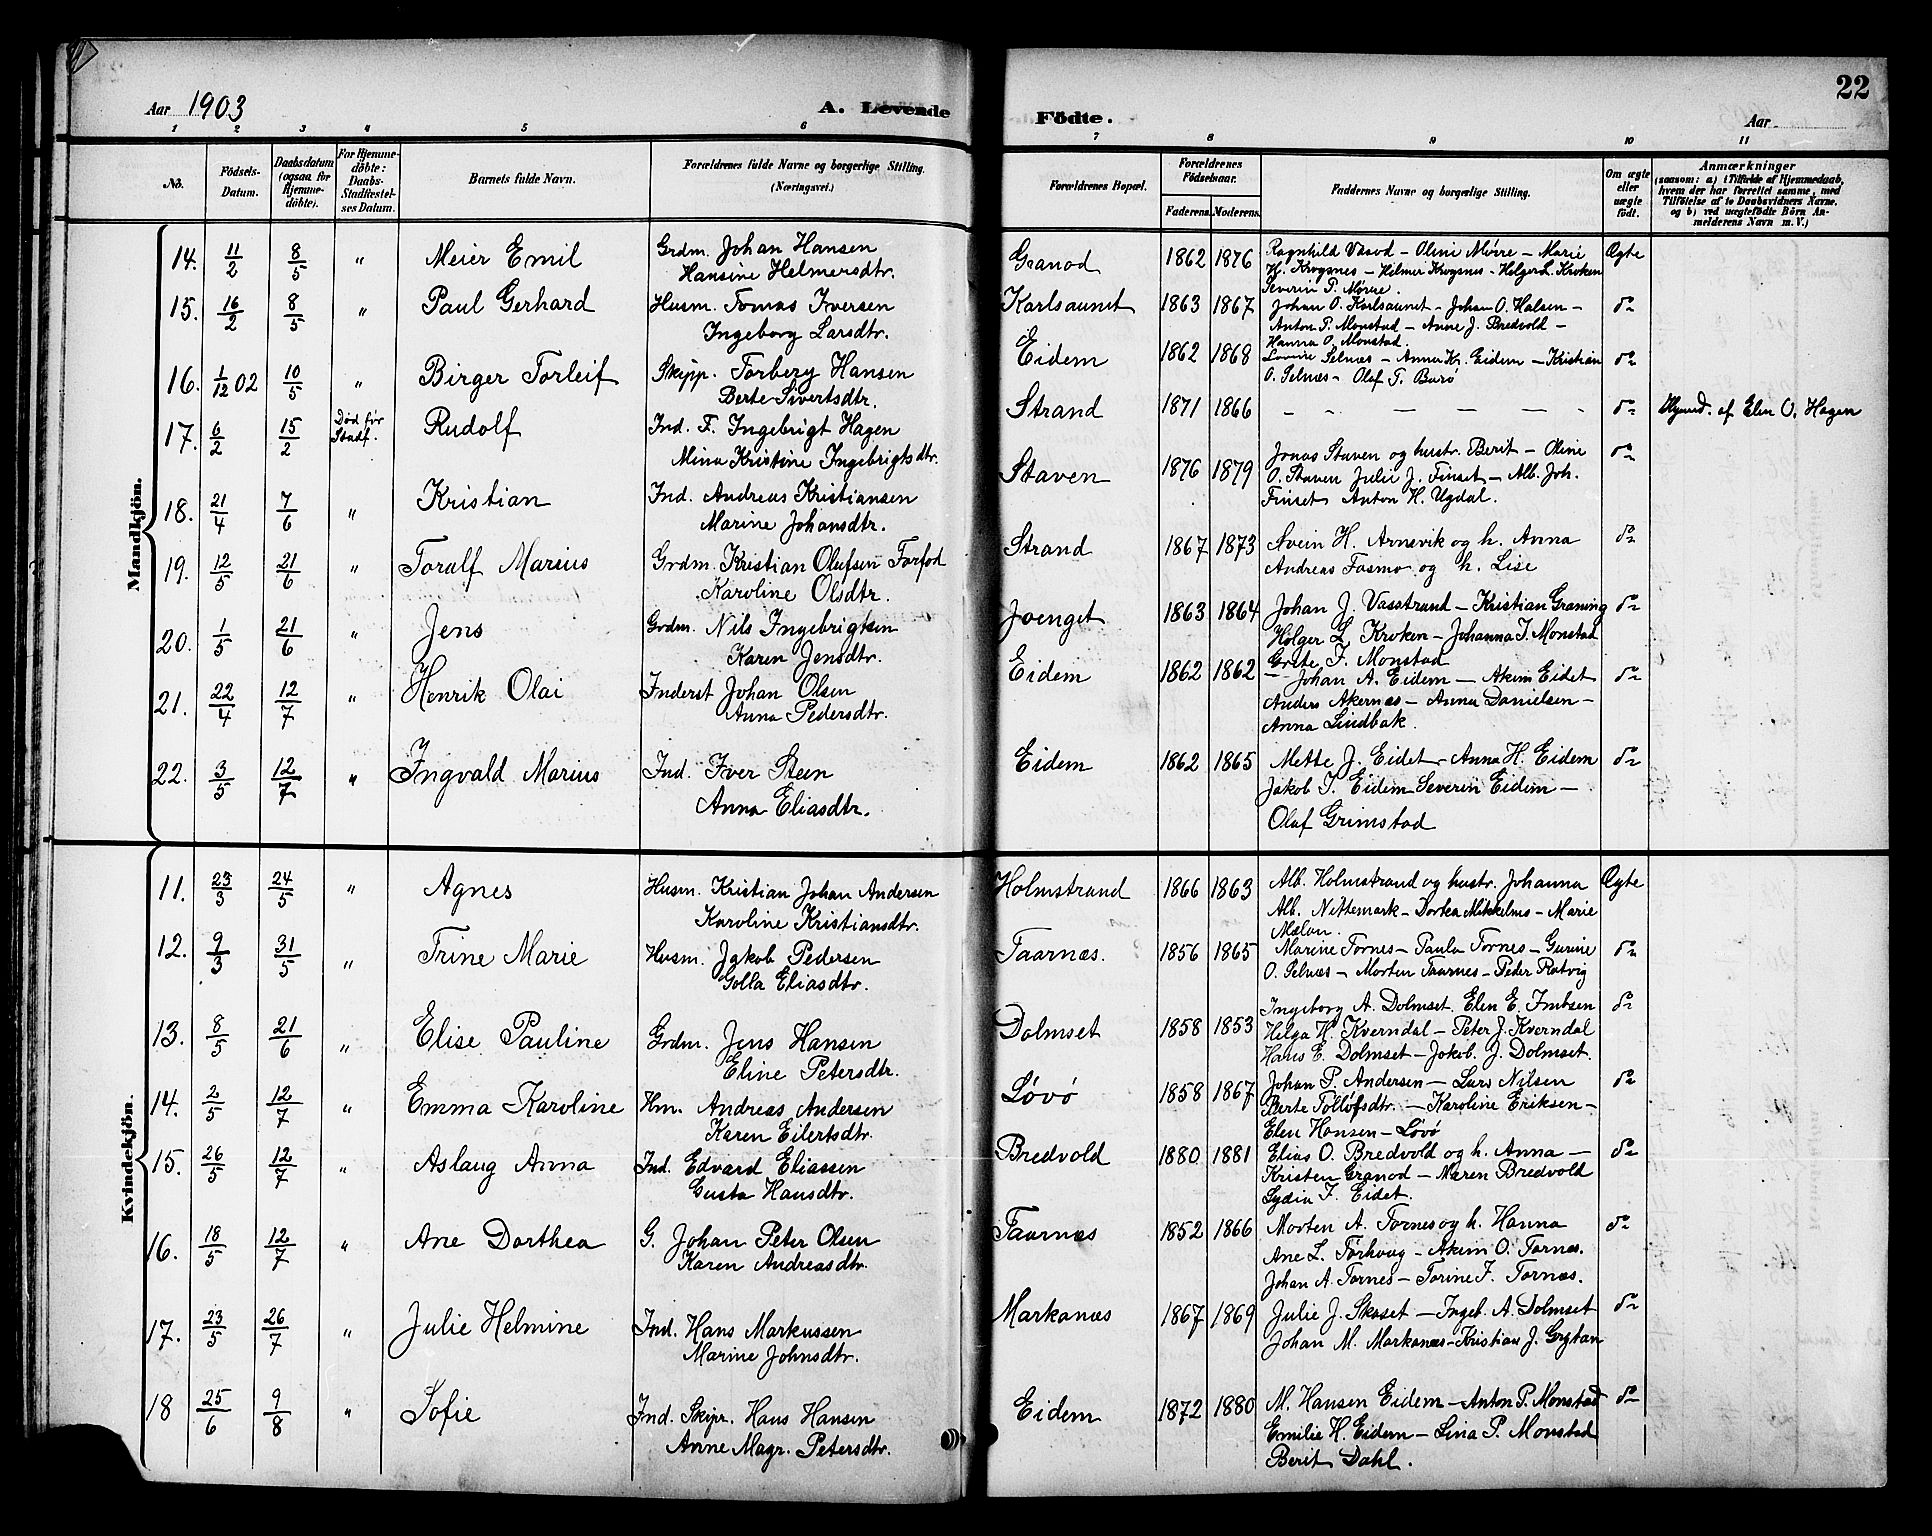 22
Aar 1903
A. Levende
Födte.
Aar
1 2 3 4 5 6 7 8 9 10 11
No.
Födsels-Datum.
Daabsdatum (ogsaa for Hjemme-döbte).
For Hjemme-döbte: Daabs-Stadfæstel-ses Datum.
Barnets fulde Navn.
Forældrenes fulde Navne og borgerlige Stilling. (Næringsvei.)
Forældrenes Bopæl.
Forældrenes Födselsaar.
Faderens. Moderens.
Faddernes Navne og borgerlige Stilling.
Om ægte eller uægte födt.
Anmærkninger
(saasom: a) i Tilfælde af Hjemmedaab,
hvem der har forrettet samme, med
Tilföielse af to Daabsvidners Navne.
og b) ved uægtefödte Börn An-
melderens Navn m. V.)
Mandkjön.
14. 11/2 8/5 " Meier Emil Grdm. Johan Hansen Granod 1862 1876 Ragnhild Vasod - Oline Møre - Marie Ægte
Hansine Helmersdtr. H. Krogsnes - Hilmer Krogsnes - Holger L. Kroken
Severin P. Møree.
15. 16/2 8/5 " Paul Gerhard Husm. Tomas Iversen Karlsaunet 1863 1867 Johan O. Karlsaunet - Johan O. Halsen - do
Ingeborg Larsdtr. Anton P. Monstad - Anne J. Bredvold -
Hanna O. Monstad.
16. 1/12 02 10/5 " Birger Torleif Skipp. Torberg Hansen Eidem 1862 1868 Selnæs - Anna Kr. Eidem - Kristian do
Berte Sivertsdtr. O. Selnæs - Olaf T. Burø
17. 6/2 15/2 Død før Stadf. Rudolf Ind. F. Ingebrigt Hagen Strand 1871 1866 - - - - - - do af Elen O. Hagen
Mina Kristine Ingebrigtsdtr.
18. 21/4 7/6 " Kristian Ind. Andreas Kristiansen Staven 1876 1879 Jonas Staven og hustr. Berit - Oline do
Marine Johansdtr. O. Staven Julie J. Finset - Alb. Joh.
Finset Anton H. Ugdal.
19. 12/5 21/6 " Toralf Marius Grdm. Kristian Olufsen Forfod Strand 1867 1873 Svein H. Arnsvik og h. Anna do
Karoline Olsdtr. Andreas Fasmo og h. Lise
20. 1/5 21/6 " Jens Grdm. Nils Ingebrigtsen Joenget 1863 1864 Johan J. Vasstrand - Kristian Graning do
Karen Jensdtr. Holger L. Kroken - Johanna I. Monstad
Grete I. Monstad
21. 22/4 12/7 " Henrik Olai Inderst Johan Olsen Eidem 1862 1862 Johan A. Eidem - Akim Eidet do
Anna Pedersdtr. Anders Akernæs - Anna Danielsen -
Anna Lindbak.
22. 3/5 12/7 " Ingvald Marius Ind. Iver Steen Eidem 1862 1865 Mette J. Eidet - Anna H. Eidem do
Anna Eliasdtr. Jakob I. Eidem Severin Eidem -
Olaf Grimstad
Kvindekjön.
11. 23/3 24/5 " Agnes Husm. Kristian Johan Andersen Holmstrand 1866 1863 Alb. Holmstrand og hustr. Johanna Ægte
Karoline Kristiansdtr. Alb. Nettemark - Dortea Mikkelms - Marie
Mælan.
12. 9/3 31/5 " Trine Marie Husm. Jakob Pedersen Taarnæs. 1856 1865 Marine Tornes - Paula Tornes - Gurine do
Golla Eliasdtr. O. Selnæs - Morten Taarnes - Peder Ratvig
13. 8/5 21/6 " Elise Pauline Grdm. Jens Hansen Dolmset 1858 1853 Ingeborg A. Dolmset. Elen E. Imbsen do
Eline Petersdtr. Helga H. Kverndal - Peter J. Kverndal
Hans E. Dolmset - Jakob. J. Dolmset.
14. 2/5 12/7 " Emma Karoline Hm. Andreas Andersen Løvø 1858 1867 Johan P. Andersen - Lars Nilsen do
Karen Eilertsdtr. Berte Tollöfsdtr. - Karoline Eriksen -
Elen Hansen - Løvø
15. 26/5 12/7 " Aslaug Anna Ind. Edvard Eliassen Bredvold 1880 1881 Elias O. Bredvold og h. Anna - do
Gusta Hansdtr. Kristen Granod - Maren Bredvold
Lydia F. Eidet.
16. 18/5 12/7 " Ane Dorthea G. Johan Peter Olsen Taarnæs 1852 1866 Morten A. Tornes og h. Hanna do
Karen Andreasdtr. Ane L. Tørhaug - Akim O. Tornæs.
Johan A. Tornes - Torine F. Tornæs.
17. 23/5 26/7 " Julie Helmine Ind. Hans Markussen Markanæs 1867 1869 Julie J. Skaset - Ingeb. A. Dolmset do
Marine Johnsdtr. Johan M. Markanæs - Kristian J. Grytan
18 25/6 9/8 " Sofie Ind. Skipr. Hans Hansen Eidem 1872 1880 M. Hansen Eidem - Anton P. Monstad do
Anne Magr. Petersdtr. Emilie H. Eidem - Lina P. Monstad
Berit Dahl.